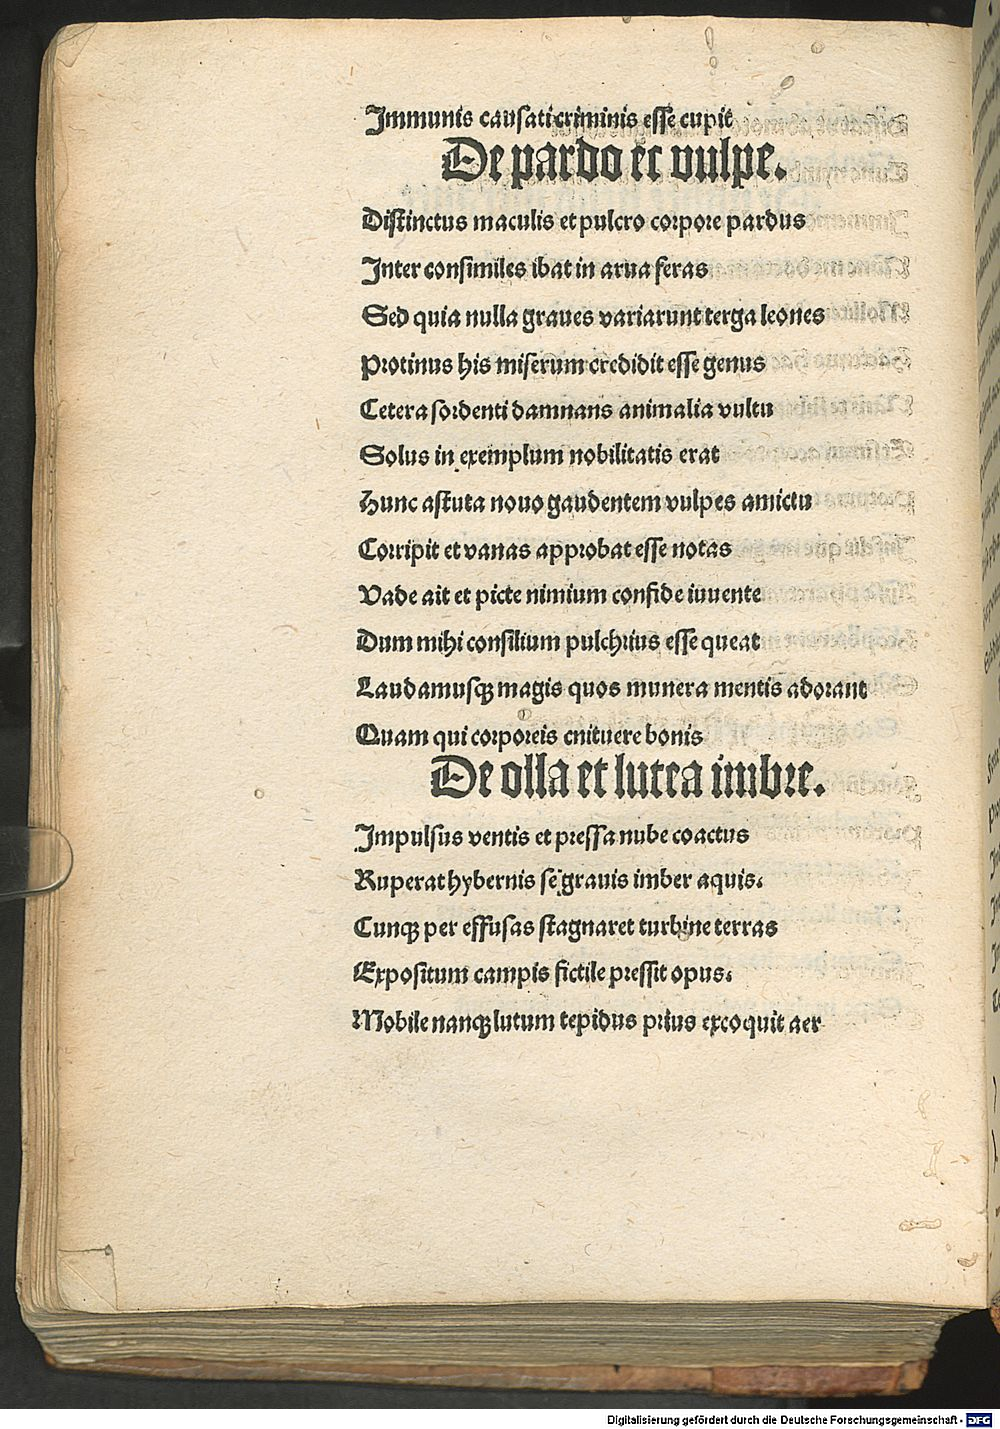 Immunis causati criminis esse cupit
De pardo et vulpe.
Distinctus maculis et pulcro corpore pardus
Inter consimiles ibat in arua feras
Sed quia nulla graues variarunt terga leones
Protinus his miserum credidit esse genus
Cetera sordenti damnans animalia vultu
Solus in exemplum nobilitatis erat
Hunc astuta nouo gaudentem vulpes amictu
Corripit et vanas approbat esse notas
Vade ait et picte nimium confide iuuente
Dum mihi consilium pulchrius esse queat
Laudamusqꝫ magis quos munera mentis adorant
Quam qui corporeis enituere bonis
De olla et lutea imbre.
Impulsus ventis et pressa nube coactus
Ruperat hybernis se grauis imber aquis.
Cunqꝫ per effusas stagnaret turbine terras
Expositum campis fictile pressit opus.
Mobile nanqꝫ lutum tepidus prius excoquit aer
Digitalisierung gefördert durch die Deutsche Forschungsgemeinschaft - DFG